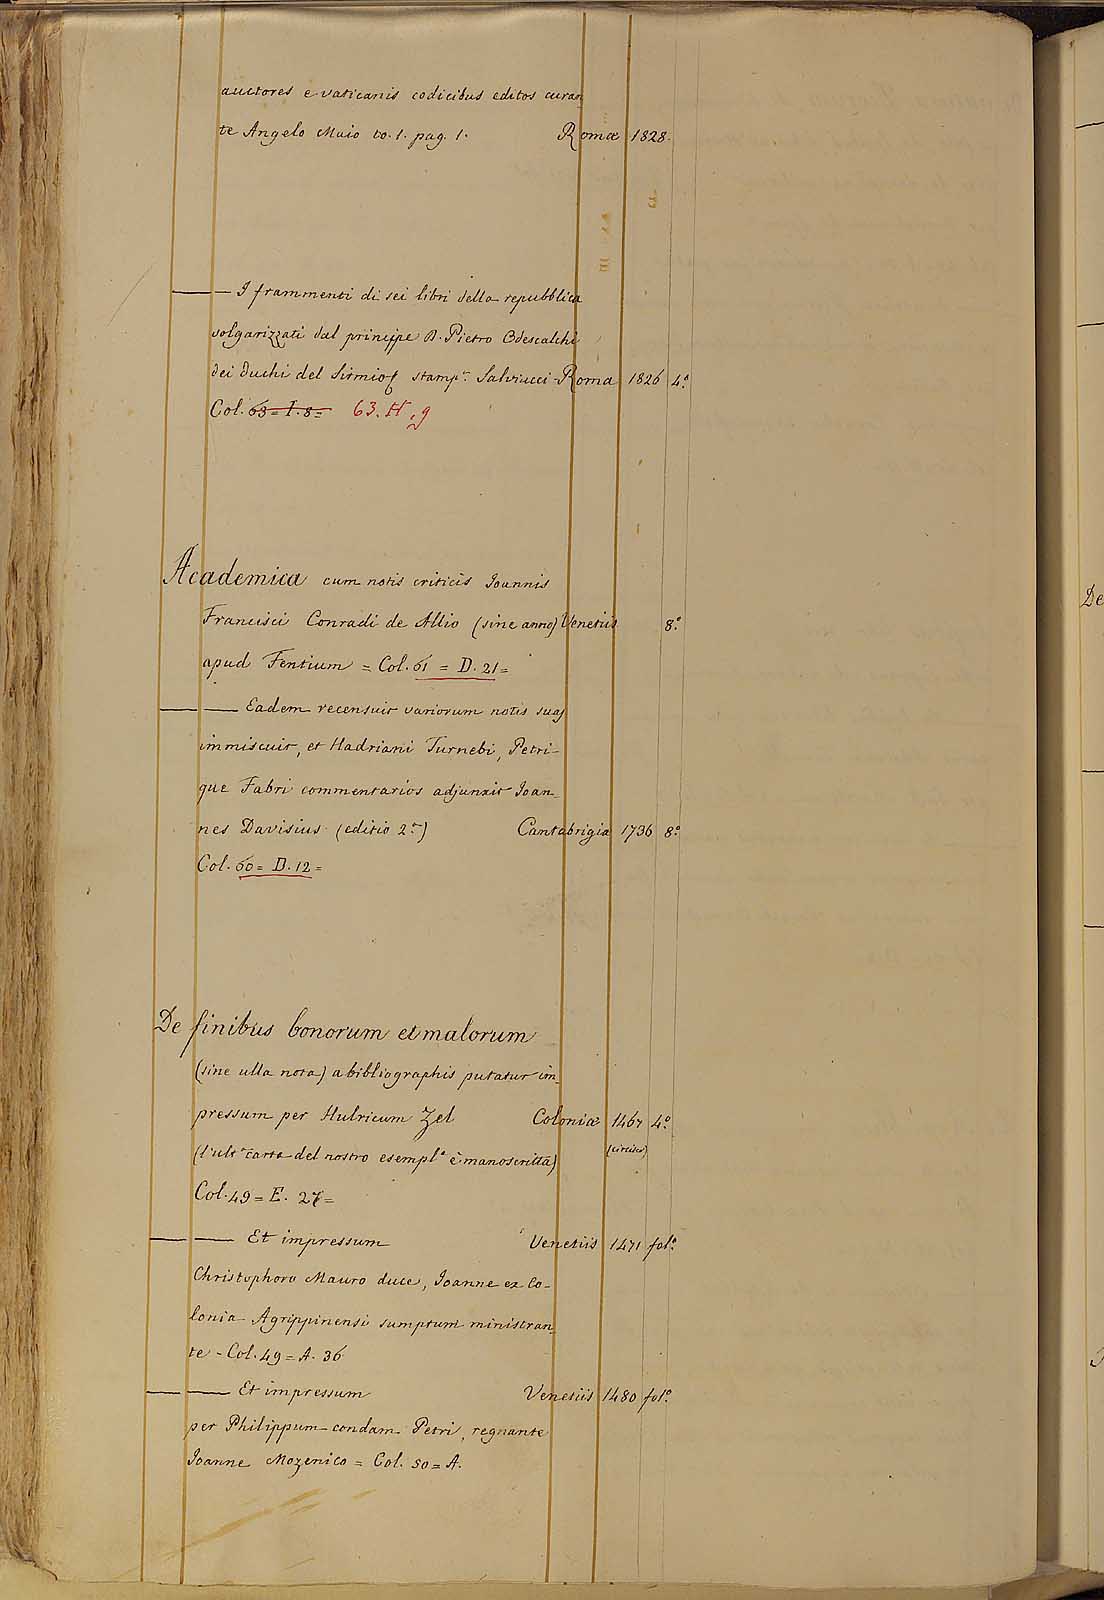 auctores e vaticanis codicibus editos curan
te Angelo Maio to. 1. pag. 1. Romæ 1828.
—— I frammenti di sei libri della repubblica
volgarizzati dal principe D. Pietro Odescalchi
dei Duchi del Sirmio stamp. Salviucci Roma 1826 4.o
Col. 63 = I. 8 = 63. H, 9
Academica cum notis criticis Ioannis
Francisci Conradi de Allio (sine anno) Venetiis 8.o
apud Fentium = Col. 61 = D. 21 =
—— Eadem recensuit variorum notis suas
immiscuit, et Hadriani Turnebi, Petri-
que Fabri commentarios adjunxit Ioan-
nes Davisius (editio 2.a) Cantabrigiæ 1736 8.o
Col. 60 = D. 12 =
De finibus bonorum et malorum
(sine ulla nota) a bibliographis putatur im-
pressum per Hulricum Zel Coloniæ 1467 4.o
(l'ult.a carta del nostro esempl.e è manoscritta) (circiter)
Col. 49 = E. 27 =
—— Et impressum Venetiis 1471 fol.o
Christophoro Mauro duce, Ioanne ex Co-
lonia Agrippinensi sumptum ministran-
te - Col. 49 = A. 36
—— Et impressum Venetiis 1480 fol.o
per Philippum condam Petri, regnante
Ioanne Mozenico = Col. 50 = A.
De